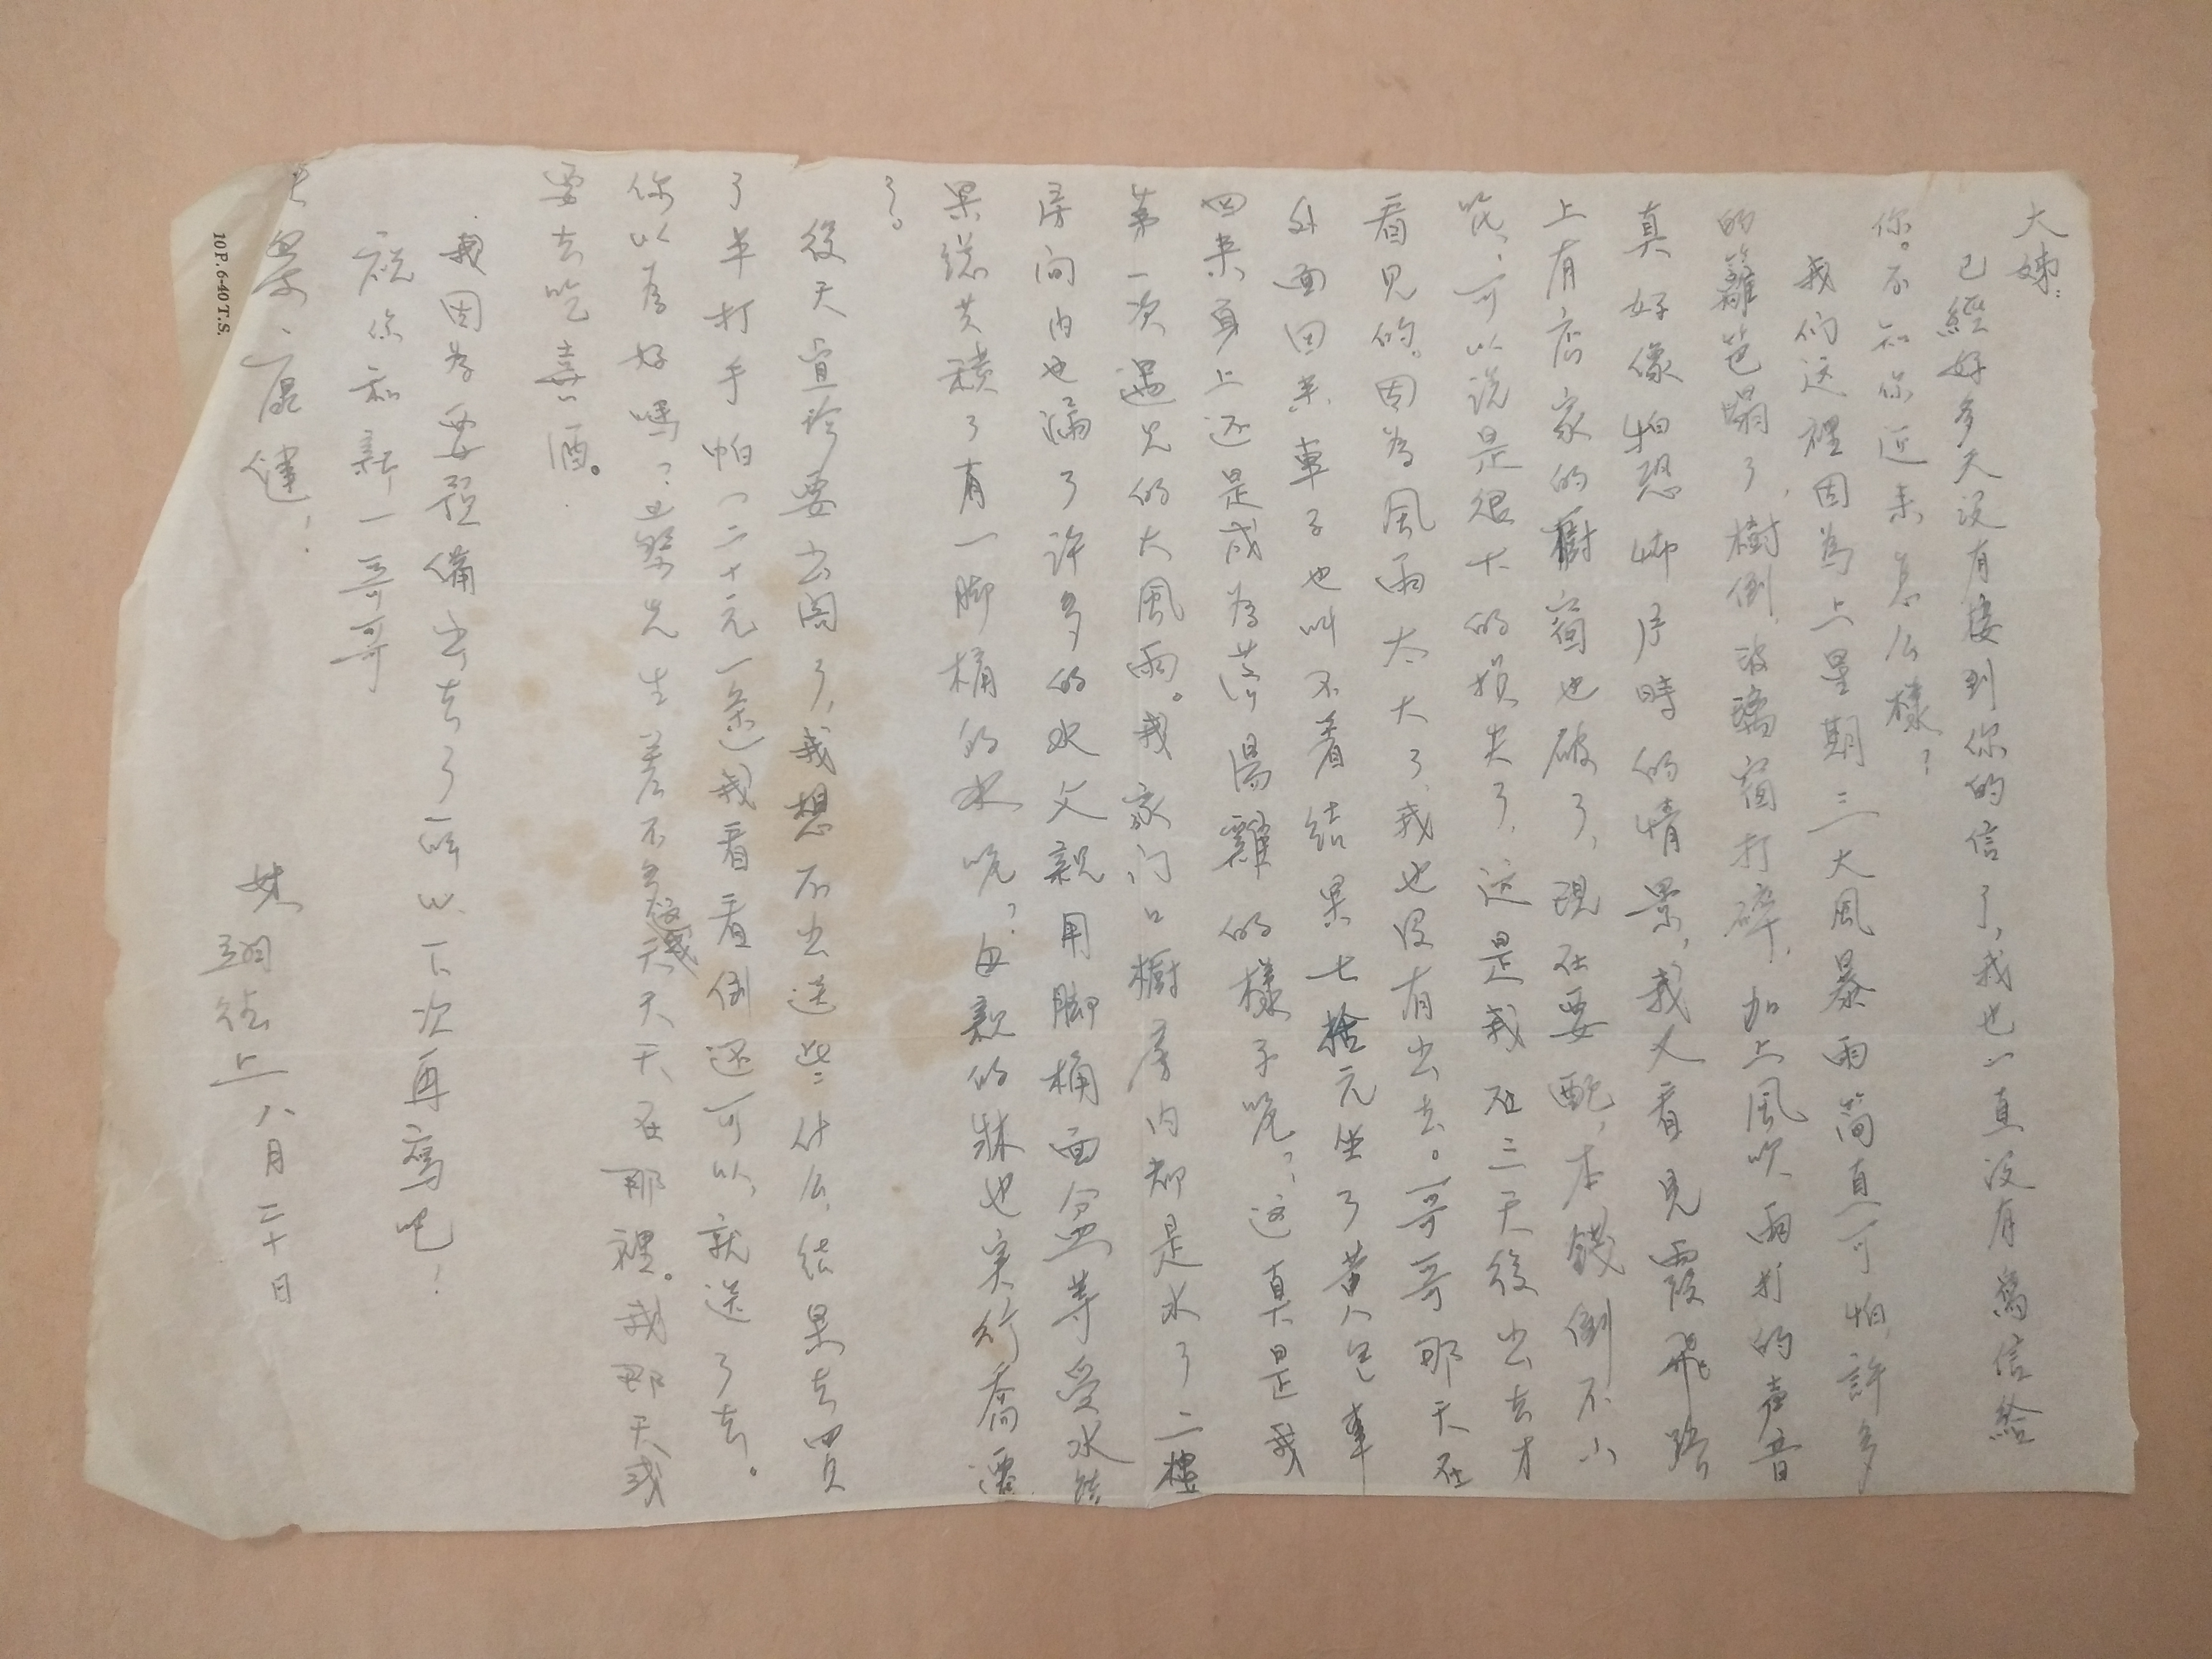 大姊：
已經好多天沒有接到你的信了，我也一直沒有寫信給
你。不知你近來怎么樣？
我们这裡因為上星期三大風暴雨简直可怕，許多
的籬笆塌了，樹倒，玻璃窗打碎，加上風吹雨打的声音
真好像怕恐 序時的情景，我又看見霞飛路
上有店家的橱窗也破了，現在要配，本錢倒不小
呢，可以说是很大的损失了，这是我在三天後出去才
看見的。因為風雨太大了，我也沒有出去。哥哥那天在
外面回來，車子也叫不着结果七拾元坐了黄包車
回来身上还是成為落湯雞的樣子呢？这真是我
第一次遇見的大風雨。我家门口橱房内都是水了二樓
房间内也漏了许多的水父親用脚桶面盆等受水结
果総共積了有一脚桶的水呢？母親的牀也实行喬遷
了。
後天宜珍要出阁了，我想不出送些什么，结果去買
了半打手帕（二十元一条）我看看倒还可以，就送了去。
你以為好嗎？ 先生差不多 天天在那裡。我那天或
要去吃喜酒。
我因為要預備出去了 下次再寫吧！
祝你和新一哥哥
康健！
妹 上 八月二十日
10 P. 6-40 T.S.